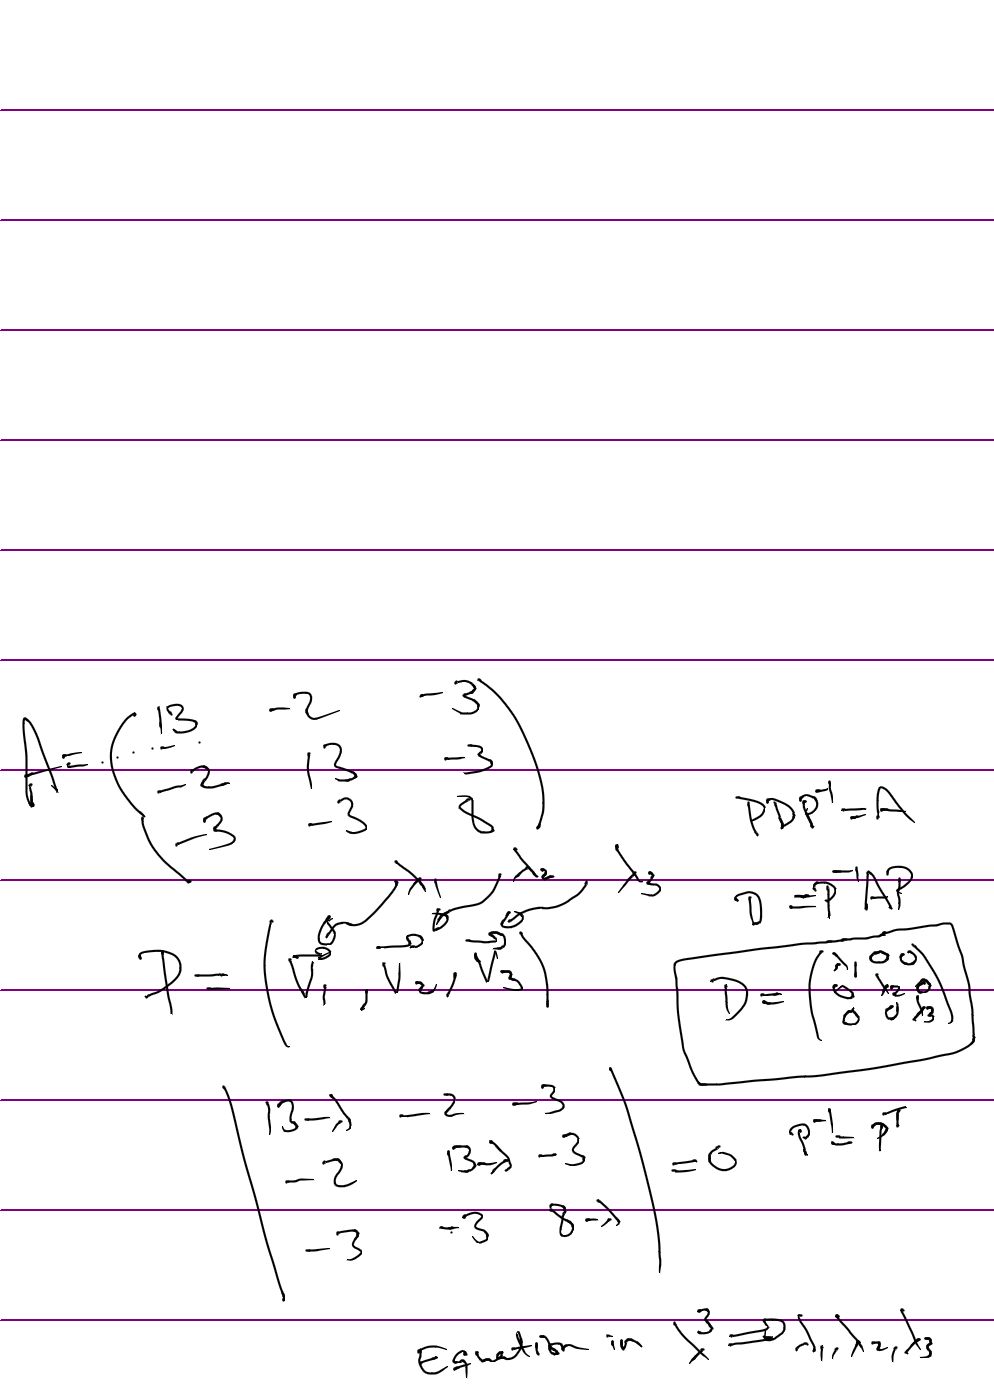 A = ( 13 -2 -3
-2 13 -3
-3 -3 8 )
PDP⁻¹ = A
λ₁ λ₂ λ₃
D = P⁻¹AP
P = ( V⃗₁, V⃗₂, V⃗₃ )
D = ( λ₁ 0 0
0 λ₂ 0
0 0 λ₃ )
| 13-λ -2 -3
-2 13-λ -3
-3 -3 8-λ | = 0
P⁻¹ = Pᵀ
Equation in λ³ ⇒ λ₁, λ₂, λ₃